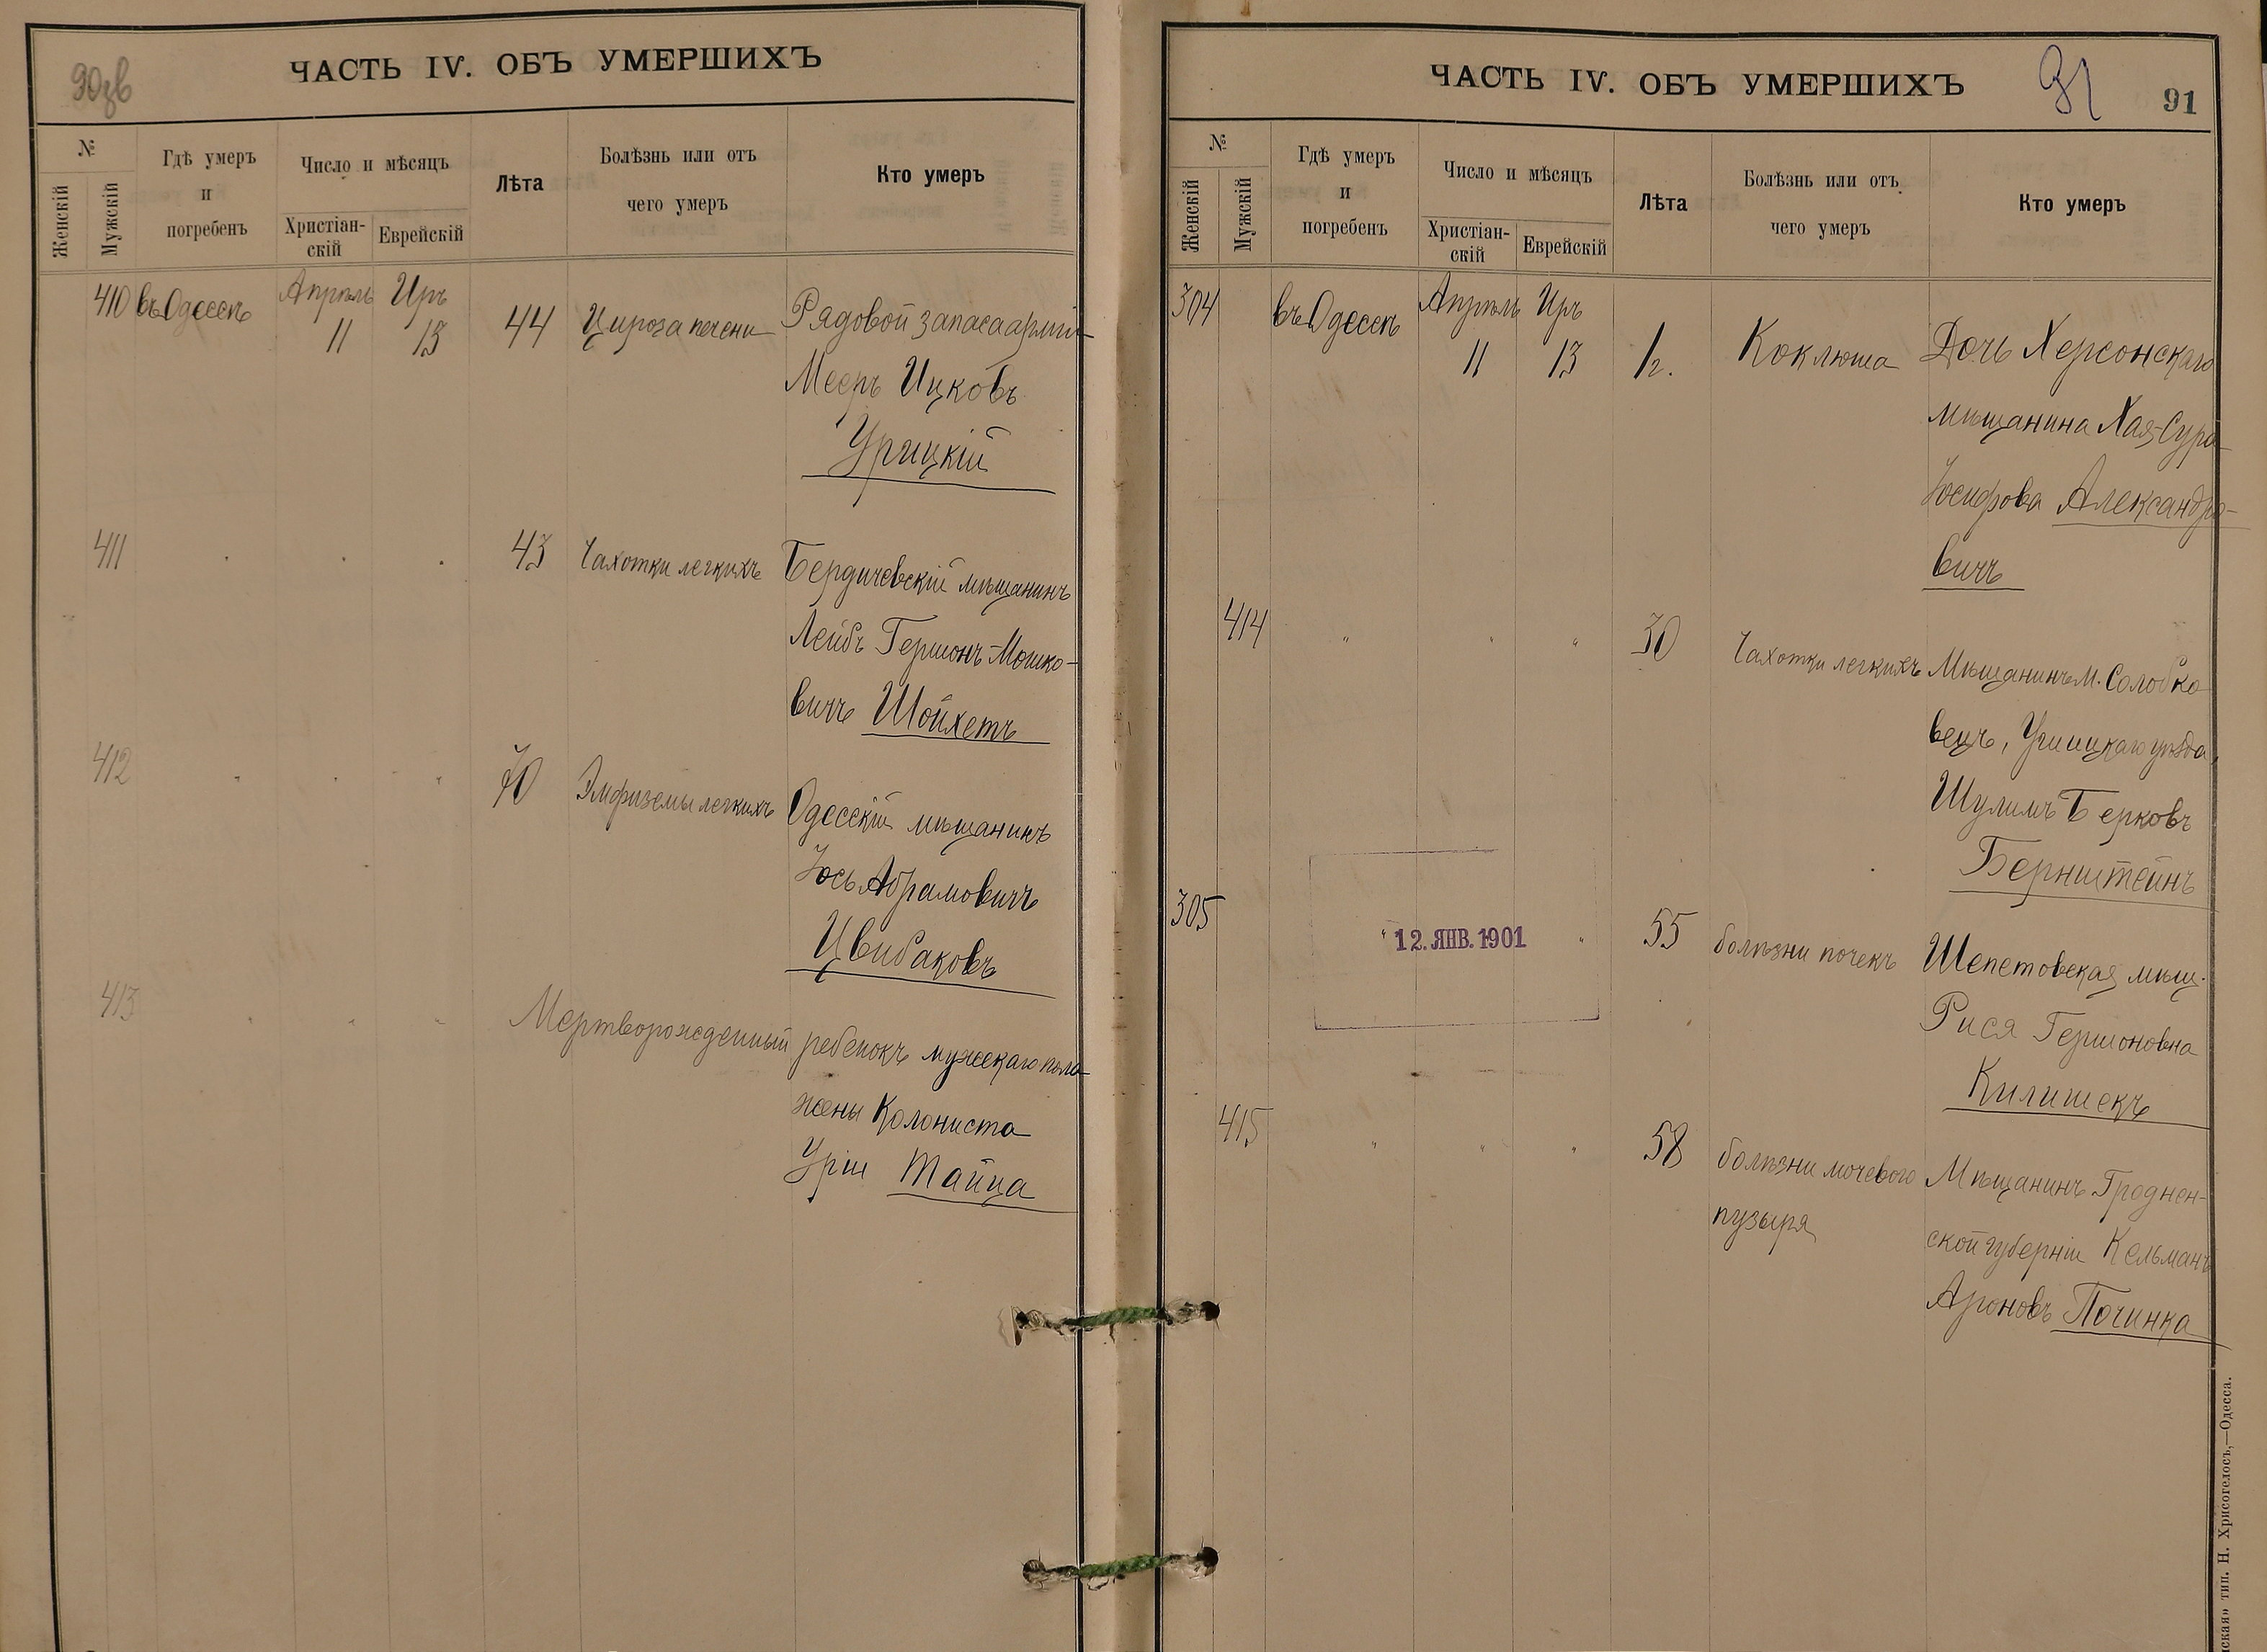 90зв
ЧАСТЬ IV. ОБЪ УМЕРШИХЪ
№
Женскій
Мужскій
Гдѣ умеръ
и
погребенъ
Число и мѣсяцъ
Христіан-
скій
Еврейскій
Лѣта
Болѣзнь или отъ
чего умеръ
Кто умеръ
410 въ Одессѣ Апрѣль Иръ
11 13 44 Цироза печени Рядовой запаса арміи
Мееръ Ицковъ
Урицкій
411 43 Чахотки легкихъ Бердичевскій мѣщанинъ
Лейбъ Гершонъ-Мошко-
вичъ Шойхетъ
412 " " " 70 Эмфиземы легкихъ Одесскій мѣщанинъ
Іось Абрамовичъ
Цвибаковъ
413 " " " Мертворожденный ребенокъ мужскаго пола
жены Колониста
Уріи Тайца
ЧАСТЬ IV. ОБЪ УМЕРШИХЪ
91
91
№
Женскій
Мужскій
Гдѣ умеръ
и
погребенъ
Число и мѣсяцъ
Христіан-
скій
Еврейскій
Лѣта
Болѣзнь или отъ
чего умеръ
Кто умеръ
304 въ Одессѣ Апрѣль Иръ
11 13 1 г. Коклюша Дочь Херсонскаго
мѣщанина Хая-Сура
Іосифова Александро-
вичъ
414 " " " 30 Чахотки легкихъ Мѣщанинъ м. Солобко
вецъ, Ушицкаго уѣзда,
Шулимъ Берковъ
Бернштейнъ
305 " 12. ЯНВ. 1901 " 55 болѣзни почекъ Шепетовская мѣщ.
Рися Гершоновна
Килишекъ
415 " " " 58 болѣзни мочевого Мѣщанинъ Гроднен-
пузыря ской губерніи Кельманъ
Ароновъ Починка
тип. Н. Хрисогелосъ,—Одесса.